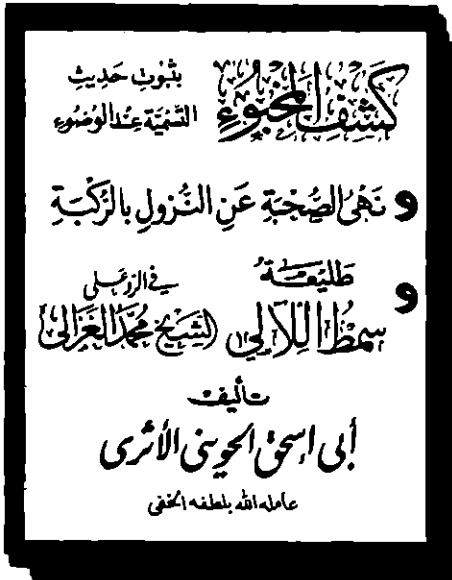 كَشْفُ المَخْبُوءِ بثُبُوتِ حَدِيثِ
التَّسْمِيَةِ عِنْدَ الوُضُوءِ
و نَهْيُ الصُّحْبَةِ عَنِ النُّزُولِ بِالرُّكْبَةِ
و طَلِيعَةُ
سِمْطُ اللآلِي في الرد على
الشيخ محمد الغزالي
تأليف
أبى إسحق الحوينى الأثرى
عامله الله بلطفه الخفى